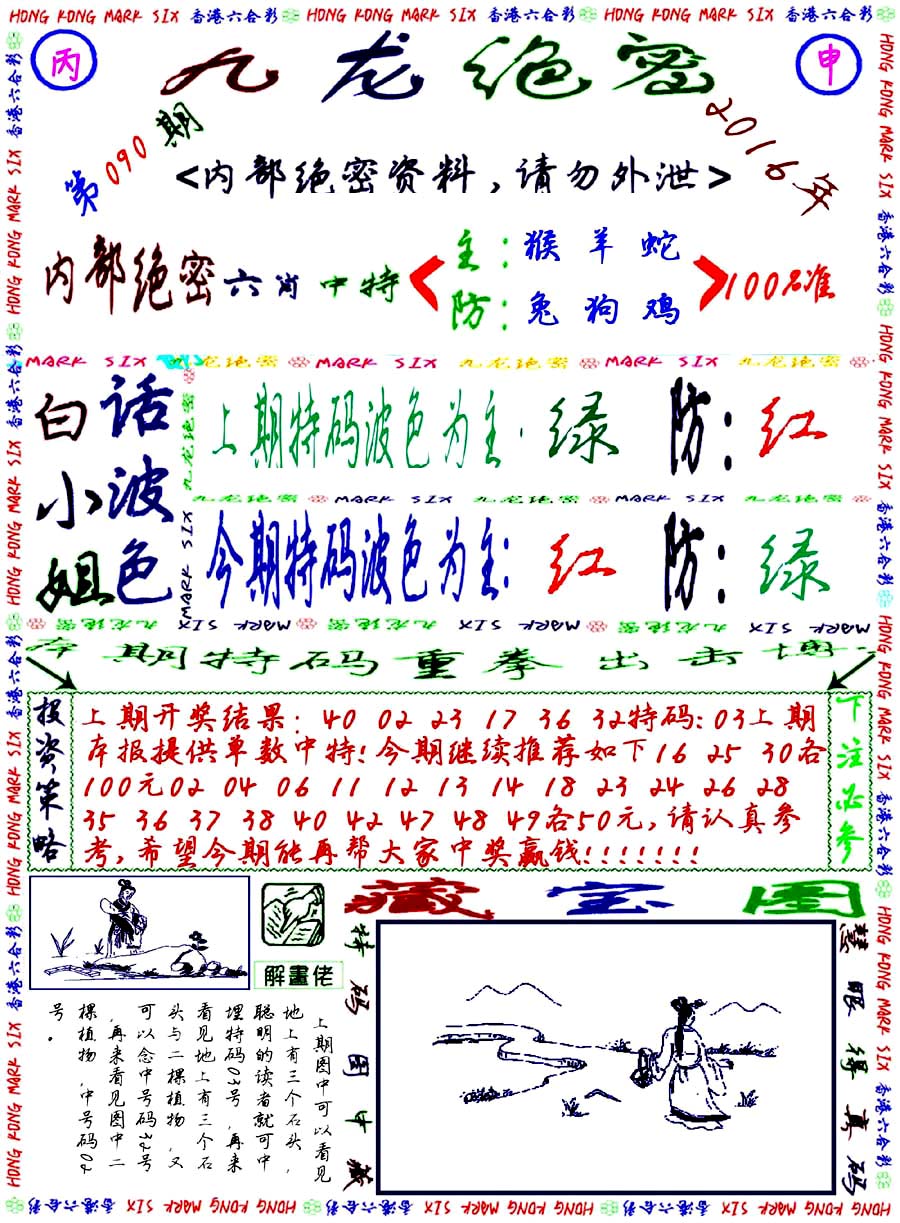 HONG KONG MARK SIX 香港六合彩 HONG KONG MARK SIX 香港六合彩 HONG KONG MARK SIX 香港六合彩
丙
九龙绝密
申
第090期
2016年
<内部绝密资料,请勿外泄>
内部绝密六肖中特
主:猴羊蛇
防:兔狗鸡
100%准
MARK SIX 九龙绝密 MARK SIX 九龙绝密 MARK SIX 九龙绝密
白话
小波
姐色
上期特码波色为主·绿 防:红
九龙绝密 MARK SIX 九龙绝密 MARK SIX 九龙绝密
今期特码波色为主:红 防:绿
九龙绝密 MARK SIX 九龙绝密 MARK SIX 九龙绝密 MARK SIX
本期特码重拳出击博
投资策略
上期开奖结果: 40 02 23 17 36 32特码:03上期
本报提供单数中特!今期继续推荐如下16 25 30各
100元02 04 06 11 12 13 14 18 23 24 26 28
35 36 37 38 40 42 47 48 49各50元,请认真参
考,希望今期能再帮大家中奖赢钱!!!!!!!
下注必参
藏宝图
解畫佬
上期图中可以看见
地上有三个石头,
聪明的读者就可中
埋特码03号,再来
看见地上有三个石
头与二棵植物,又
可以念中号码32号
,再来看见图中二
棵植物,中号码02
号.
特码图中藏
慧眼得真码
HONG KONG MARK SIX 香港六合彩 HONG KONG MARK SIX 香港六合彩 HONG KONG MARK SIX 香港六合彩